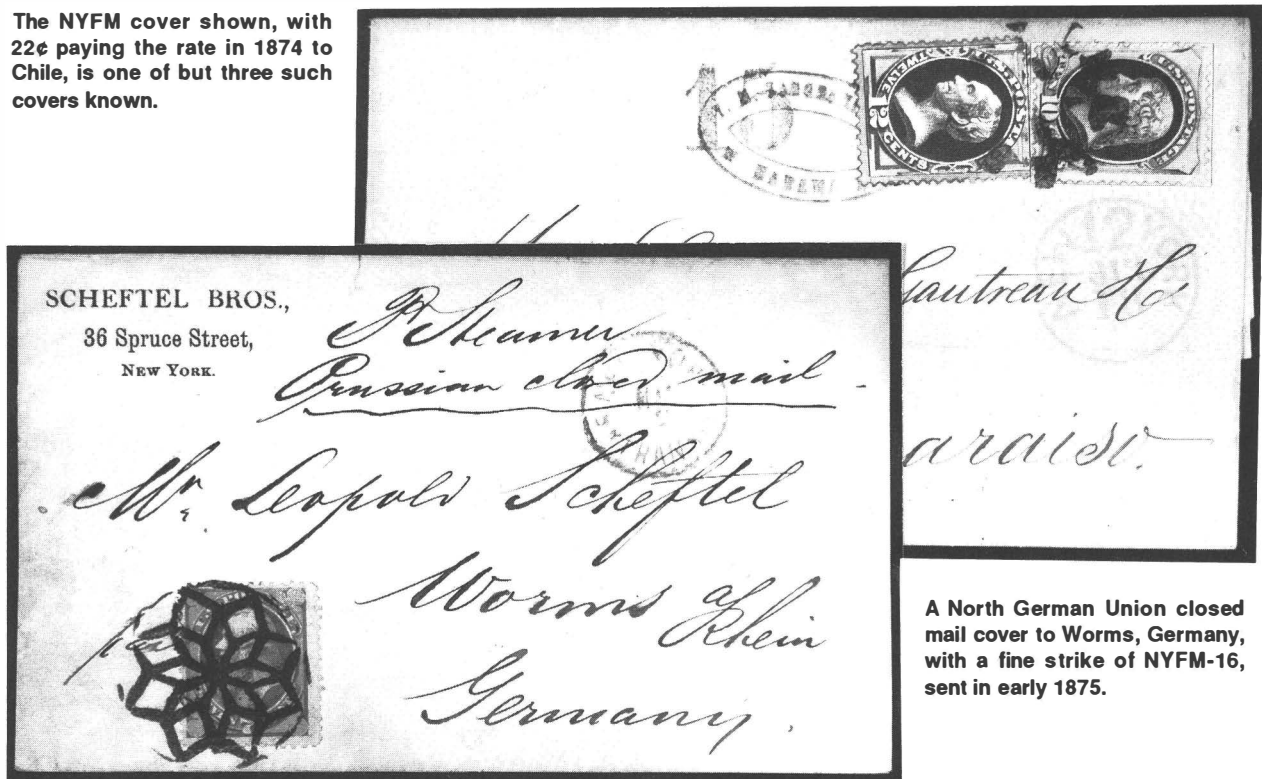 The NYFM cover shown, with
22¢ paying the rate in 1874 to
Chile, is one of but three such
covers known.
12
CENTS
10
Gautreau
araiso.
SCHEFTEL BROS.,
36 Spruce Street,
NEW YORK.
Pr Steamer
Prussian closed mail
Mr. Leopold Scheftel
Worms a/
Rhein
Germany.
A North German Union closed
mail cover to Worms, Germany,
with a fine strike of NYFM-16,
sent in early 1875.